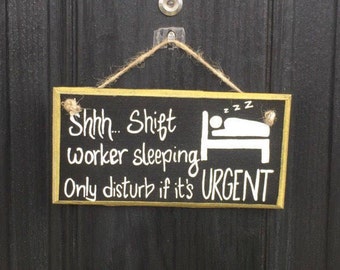 Shhh... Shift
zzz
worker sleeping
Only disturb if it's URGENT